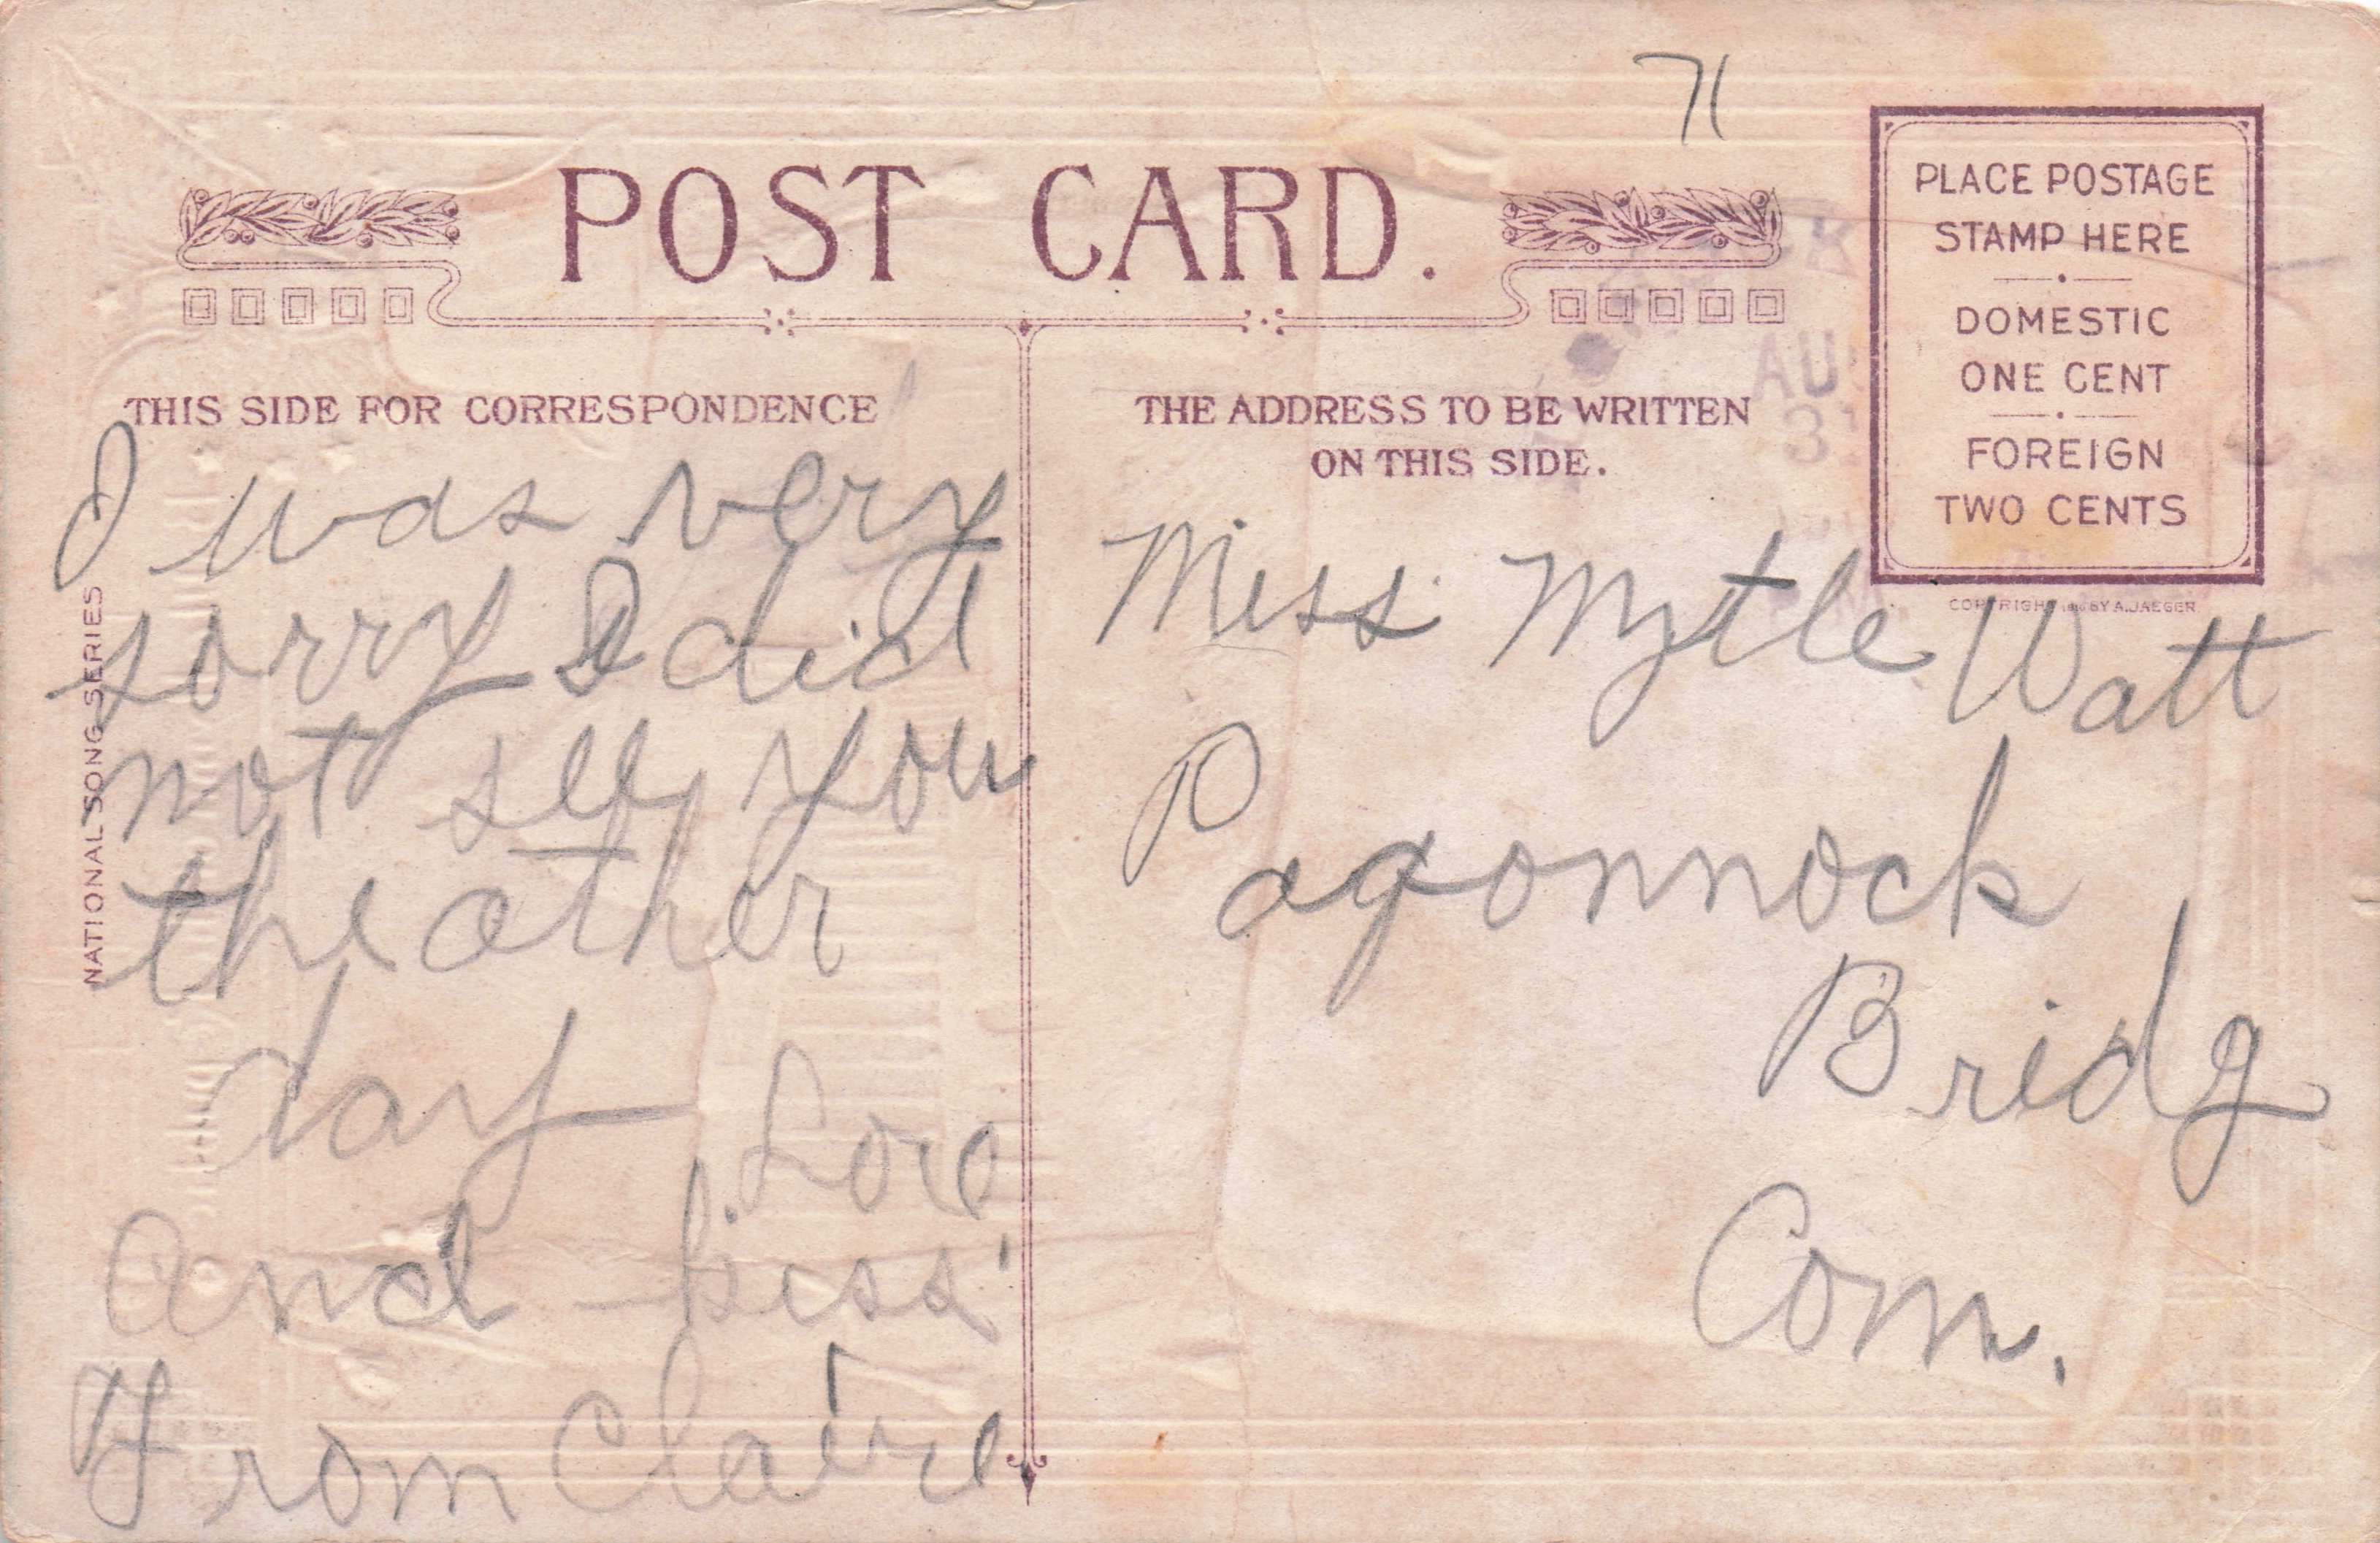 71
POST CARD.
PLACE POSTAGE
STAMP HERE
DOMESTIC
ONE CENT
FOREIGN
TWO CENTS
COPYRIGHT 1910 BY A. JAEGER
AU
3
THIS SIDE FOR CORRESPONDENCE
NATIONAL SONG SERIES
I was very
sorry I did
not see you
the other
day Love
And kiss
From Claire
THE ADDRESS TO BE WRITTEN
ON THIS SIDE.
Miss Mytle Watt
Pagonnock
Bridg
Conn.